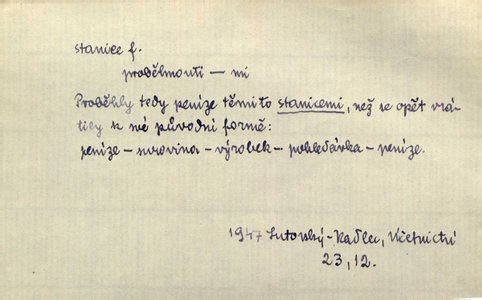 stanice f.
proběhnouti — mi
Proběhly tedy peníze těmito stanicemi, než se opět vrá-
tily k své původní formě:
peníze – surovina – výrobek – pohledávka – peníze.
1947 Lutovský-Kadlec, Účetnictví
23, 12.